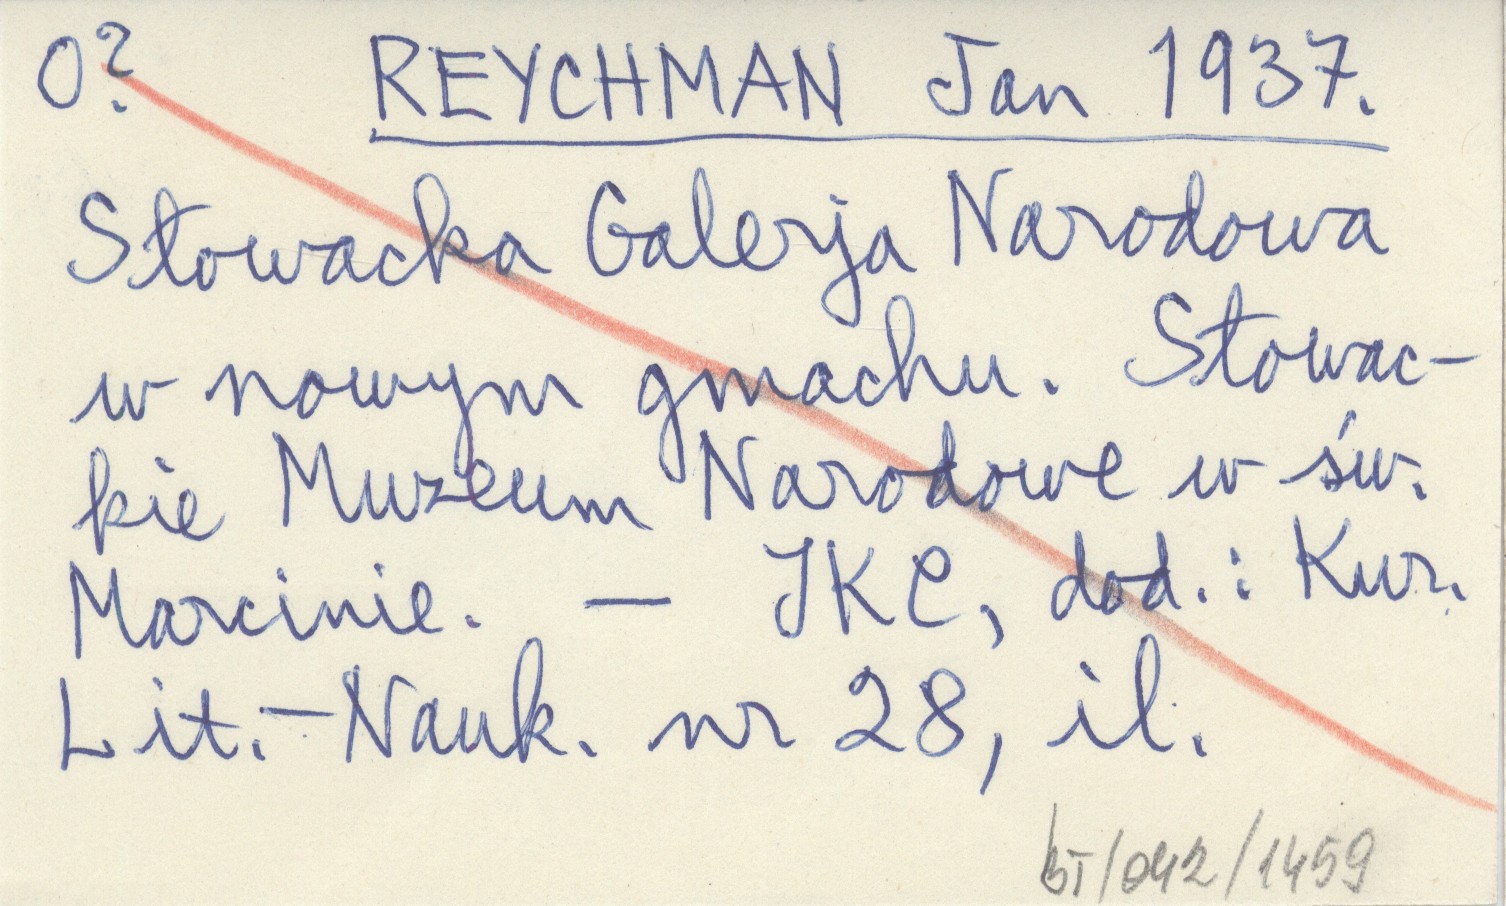 O? REYCHMAN Jan 1937.
Słowacka Galerja Narodowa
w nowym gmachu. Słowac-
kie Muzeum Narodowe w św.
Marcinie. — IKC, dod.: Kur.
Lit.-Nauk. nr 28, il.
BT/042/1459